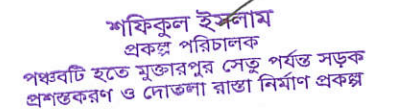 শফিকুল ইসলাম
প্রকল্প পরিচালক
পঞ্চবটি হতে মুক্তারপুর সেতু পর্যন্ত সড়ক
প্রশস্তকরণ ও দোতলা রাস্তা নির্মাণ প্রকল্প